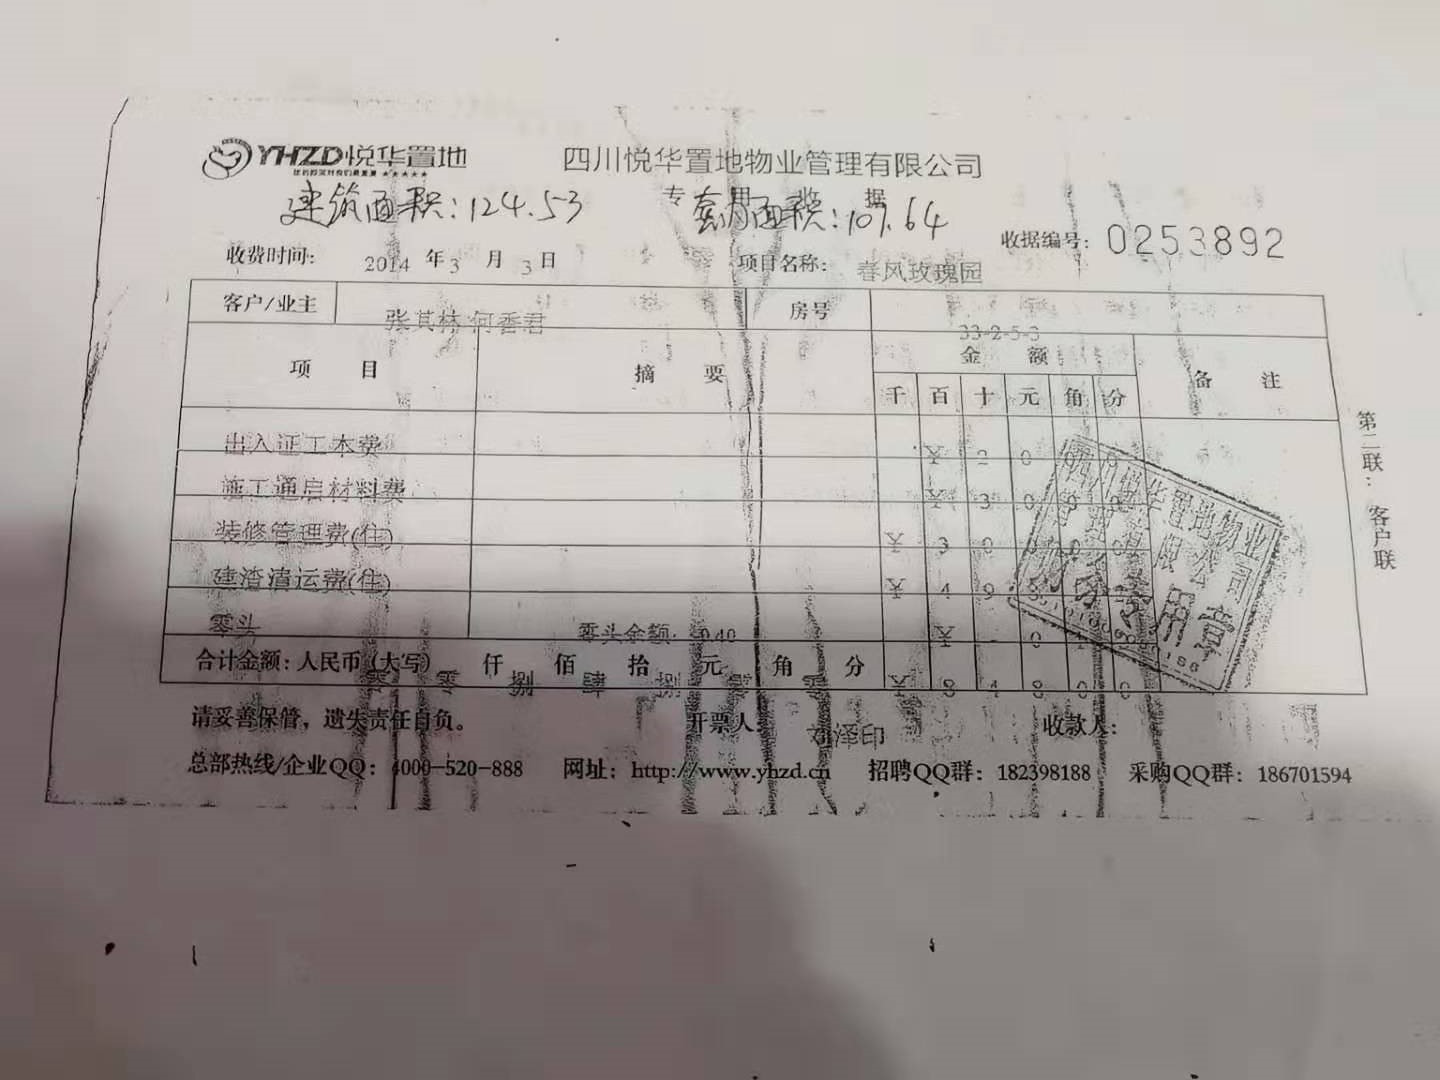 YHZD悦华置地
四川悦华置地物业管理有限公司
专用收据
建筑面积:124.53 套内面积:107.64
收据编号: 0253892
收费时间: 2014 年 3 月 3 日 项目名称: 春风玫瑰园
客户/业主 张其林 何香君 房号 33-2-5-3
项 目 摘 要 金 额 备 注
千 百 十 元 角 分
出入证工本费 2 0 0 0
施工通启材料费 3 0 0 0
装修管理费(住) 3 0 0 0 0
建渣清运费(住) 4 9 8
零头 零头金额: 0.40
合计金额:人民币(大写) 仟 佰 拾 元 角 分
零 零 捌 肆 捌 零 零 8 4 8 0 0
第二联: 客户联
请妥善保管,遗失责任自负。 开票人: 泽印 收款人:
总部热线/企业QQ: 4000-520-888 网址: http://www.yhzd.cn 招聘QQ群: 182398188 采购QQ群: 186701594